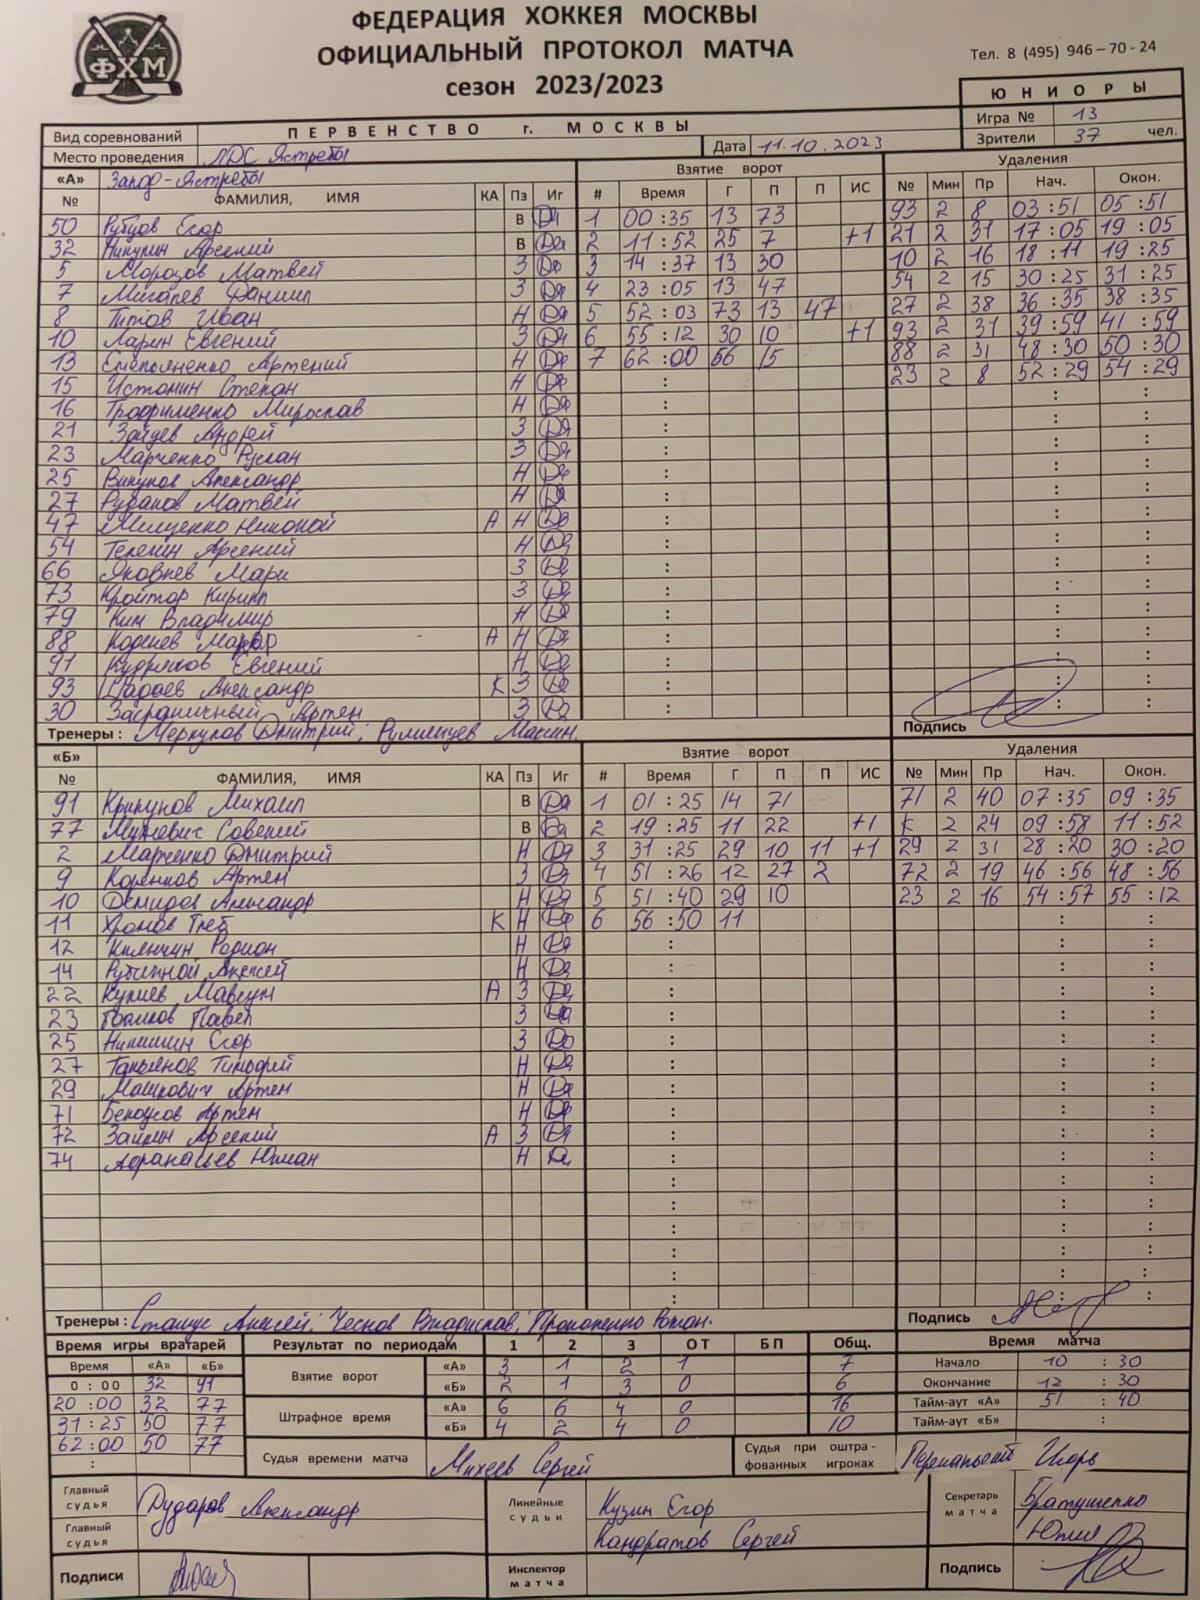 ФХМ
ФЕДЕРАЦИЯ ХОККЕЯ МОСКВЫ
ОФИЦИАЛЬНЫЙ ПРОТОКОЛ МАТЧА
сезон 2023/2023
Тел. 8 (495) 946–70-24
ЮНИОРЫ
Вид соревнований ПЕРВЕНСТВО г. МОСКВЫ Игра № 13
Место проведения ЛДС Ястребы Дата 11.10.2023 Зрители 37 чел.
«А» Запад-Ястребы Взятие ворот Удаления
№ ФАМИЛИЯ, ИМЯ КА Пз Иг # Время Г П П ИС № Мин Пр Нач. Окон.
50 Рубцов Егор В Да 1 00:35 13 73 93 2 8 03:51 05:51
32 Никулин Арсений В Да 2 11:52 25 7 +1 21 2 31 17:05 19:05
5 Морозов Матвей З Да 3 14:37 13 30 10 2 16 18:11 19:25
7 Мигалев Даниил З Да 4 23:05 13 47 54 2 15 30:25 31:25
8 Титов Иван Н Да 5 52:03 73 13 47 27 2 38 36:35 38:35
10 Ларин Евгений З Да 6 55:12 30 10 +1 93 2 31 39:59 41:59
13 Емельяненко Артений Н Да 7 62:00 66 15 88 2 31 48:30 50:30
15 Истомин Степан Н Да : 23 2 8 52:29 54:29
16 Трофименко Мирослав Н Да
21 Зайцев Андрей З Да
23 Марченко Руслан З Да
25 Викулов Александр Н Да
27 Рубанов Матвей Н Да
47 Мищенко Николой А Н Да
54 Телегин Арсений Н Да
66 Яковлев Марк З Да
73 Кройтор Кирилл З Да
79 Ким Владимир Н Да
88 Коденев А Н Да
91 Кудряков Евгений Н Да
93 Цадаев Александр К З Да
30 Заграничный Артем З Да
Тренеры: Меркулов Дмитрий; Румянцев Максим. Подпись
«Б» Взятие ворот Удаления
№ ФАМИЛИЯ, ИМЯ КА Пз Иг # Время Г П П ИС № Мин Пр Нач. Окон.
91 Крикунов Михаил В Да 1 01:25 14 71 71 2 40 07:35 09:35
77 В Да 2 19:25 11 22 +1 К 2 24 09:58 11:52
2 Марченко Дмитрий Н Да 3 31:25 29 10 11 +1 29 2 31 28:20 30:20
9 Коренков Артем З Да 4 51:26 12 27 2 72 2 19 46:56 48:56
10 Демидов Александр Н Да 5 51:40 29 10 23 2 16 54:57 55:12
11 Хромов Глеб К Н Да 6 56:50 11
12 Родион Н Да
14 Алексей Н Да
22 Купиев Максум А З Да
23 Павел З Да
25 Никишин Егор З Да
27 Тимофей Н Да
29 Машкович Артем Н Да
71 Белоусов Артем Н Да
72 Заикин Арсений А З Да
74 Афанасьев Юлиан Н Да
Тренеры: Алексей; Чеснов Владислав; Прокопенко Роман. Подпись
Время игры вратарей Результат по периодам 1 2 3 ОТ БП Общ. Время матча
Время «А» «Б» Взятие ворот «А» 3 1 2 1 7 Начало 10:30
0:00 32 91 «Б» 2 1 3 0 6 Окончание 12:30
20:00 32 77 Штрафное время «А» 6 6 4 0 16 Тайм-аут «А» 51:40
31:25 50 77 «Б» 4 2 4 0 10 Тайм-аут «Б» :
62:00 50 77 Судья времени матча Михеев Сергей Судья при оштрафованных игроках Игорь
Главный судья Дударов Александр Линейные судьи Кузин Егор Секретарь матча Братушенко
Главный судья Кандратов Сергей Юлия
Подписи Инспектор матча Подпись